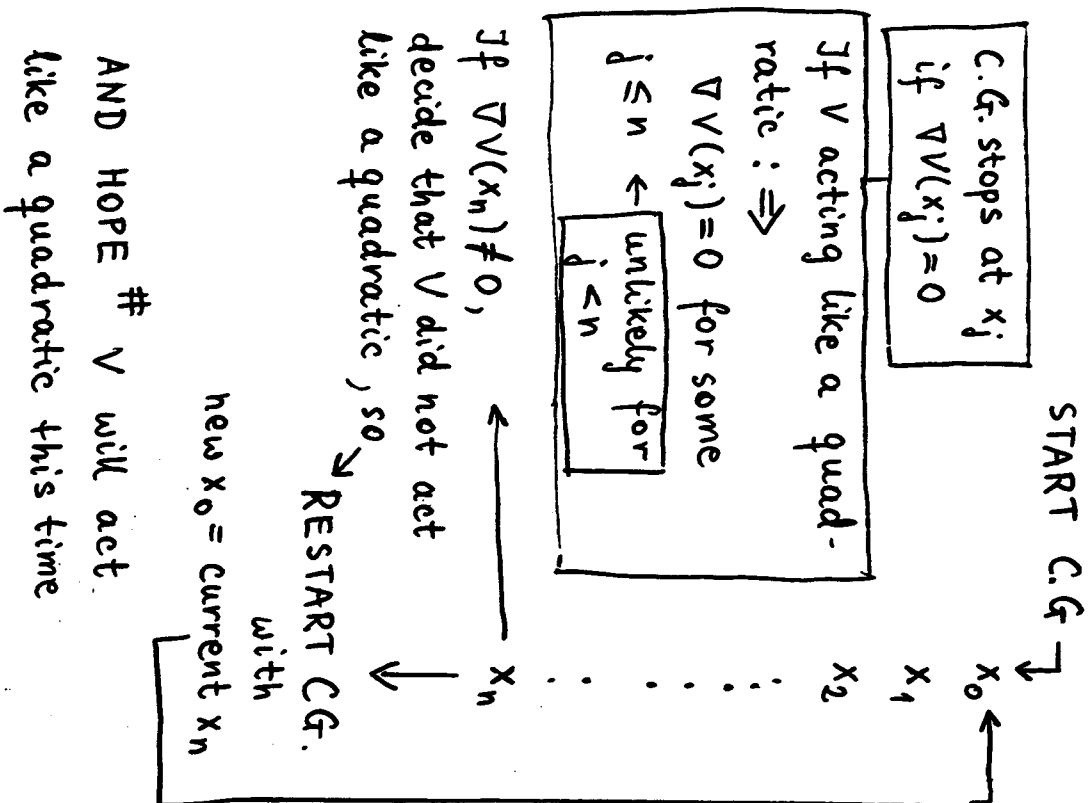 START C.G
C.G. stops at xⱼ
if ∇V(xⱼ)=0
If V acting like a quad-
ratic : ⇒
∇V(xⱼ)=0 for some
j ≤ n ← unlikely for
j < n
x₀
x₁
x₂
xₙ
If ∇V(xₙ)≠0,
decide that V did not act
like a quadratic, so
RESTART CG.
with
new x₀ = current xₙ
AND HOPE # V will act
like a quadratic this time